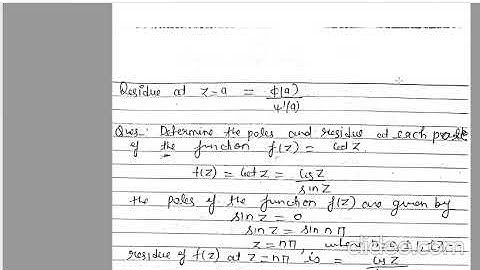 Residue at z=a = φ(a)/ψ'(a)
Ques: Determine the poles and residue at each pole
of the function f(z) = cot z.
f(z) = cot z = cos z / sin z
the poles of the function f(z) are given by
sin z = 0
sin z = sin nπ
z = nπ, where
residue of f(z) at z=nπ is = cos z
clideo.com